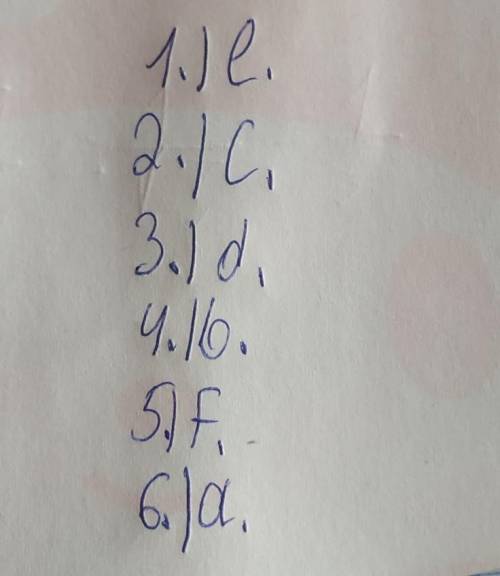 1.) e.
2.) c.
3.) d.
4.) b.
5.) F.
6.) a.